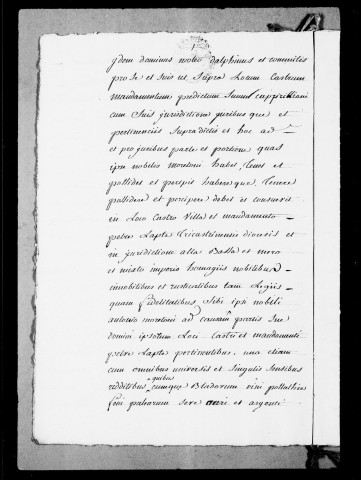 jdem dominus noster dalphinus et comunites
pro se et suis ut supra totum Castrum
mandamentum predictum simul cappittiani
cum suis jurisdictione juribus que et
pertinenciis supradictis et hoc ad
et pro juribus parte et portione quas
ipse nobilis moretoni habet, tenet et
possidet et percipit habereque, tenere
possidere et percipere debet et consuevit
en Loco Castro Villa et mandamento
petre Lapte tricastrinensis diocesis et
in juridictione alta Bassa et mero
et mixto imperio homagiis nobilibus
innobilibus et rusticalibus tam Ligiis
quam fidelitatibus sibi ipsi nobili
antonio moretoni ad causam partis sue
domini ipsorum Loci Castri et mandamenti
petre Lapte pertinentibus, una etiam
cum omnibus universis et singulis sensibus
redditibus quibuscumque Bladorum vini
feni palearum cere auri et argenti